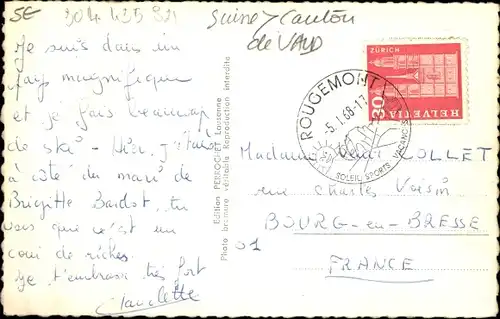 5€
304 425 821
Suisse > Canton
de VAUD
Je suis dans un
pays magnifique
et je fais beaucoup
de ski - Hier, j'étais
à côté du mari de
Brigitte Bardot, tu
vois que c'est un
coin de riches.
Je t'embrasse très fort
Edition PERROCHET Lausanne
Photo bromure véritable Reproduction interdite
ZÜRICH
30
HELVETIA
ROUGEMONT
-5.1.68-17
SOLEIL SPORTS VACANCES
Madame Henri COLLET
rue Charles Voisin
BOURG-en-BRESSE
01
FRANCE